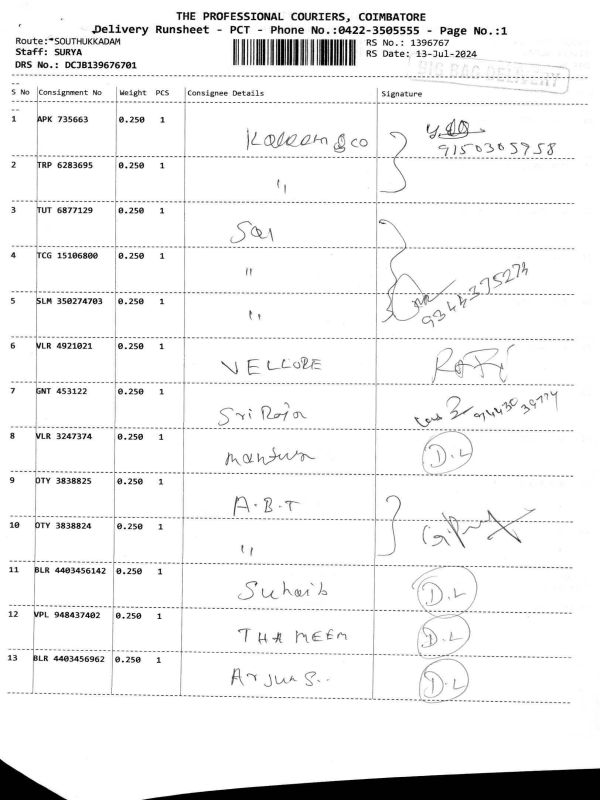 THE PROFESSIONAL COURIERS, COIMBATORE
Delivery Runsheet - PCT - Phone No.:0422-3505555 - Page No.:1
Route:*SOUTHUKKADAM RS No.: 1396767
Staff: SURYA RS Date: 13-Jul-2024
DRS No.: DCJB139676701
BIG BAG DELIVERY
S No Consignment No Weight PCS Consignee Details Signature
1 APK 735663 0.250 1 & co
9150305958
2 TRP 6283695 0.250 1 ''
3 TUT 6877129 0.250 1 Sai
4 TCG 15106800 0.250 1 ''
5 SLM 350274703 0.250 1 '' 9344375274
6 VLR 4921021 0.250 1 VELLORE
7 GNT 453122 0.250 1 Sri Raja
8 VLR 3247374 0.250 1 D.L
9 OTY 3838825 0.250 1 A.B.T
10 OTY 3838824 0.250 1 ''
11 BLR 4403456142 0.250 1 Suhaib D.L
12 VPL 948437402 0.250 1 THAMEEM D.L
13 BLR 4403456962 0.250 1 Arjun S.. D.L